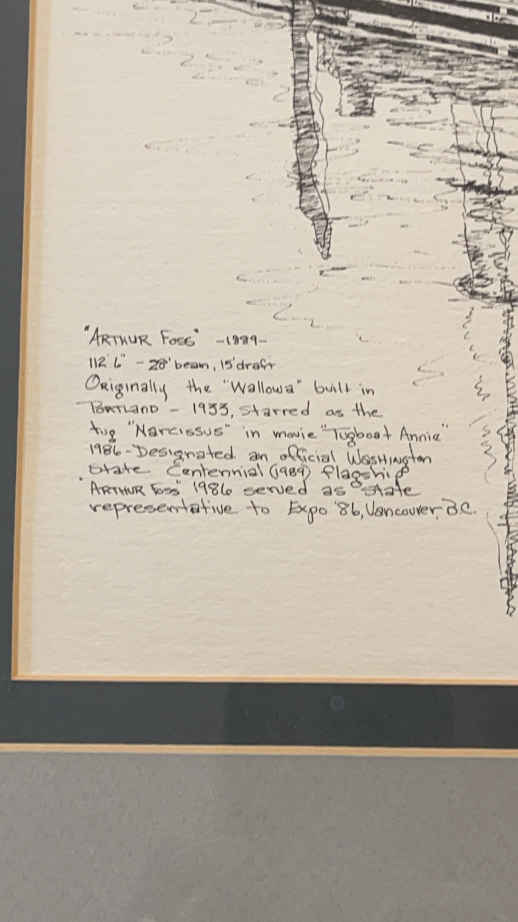 "ARTHUR FOSS" -1889-
112' 6" - 28' beam, 15' draft
Originally the "Wallowa" built in
PORTLAND - 1933, starred as the
tug "Narcissus" in movie "Tugboat Annie"
1986 - Designated an official WASHINGTON
State Centennial (1989) flagship
"ARTHUR FOSS" 1986 served as state
representative to Expo '86, Vancouver, B.C.